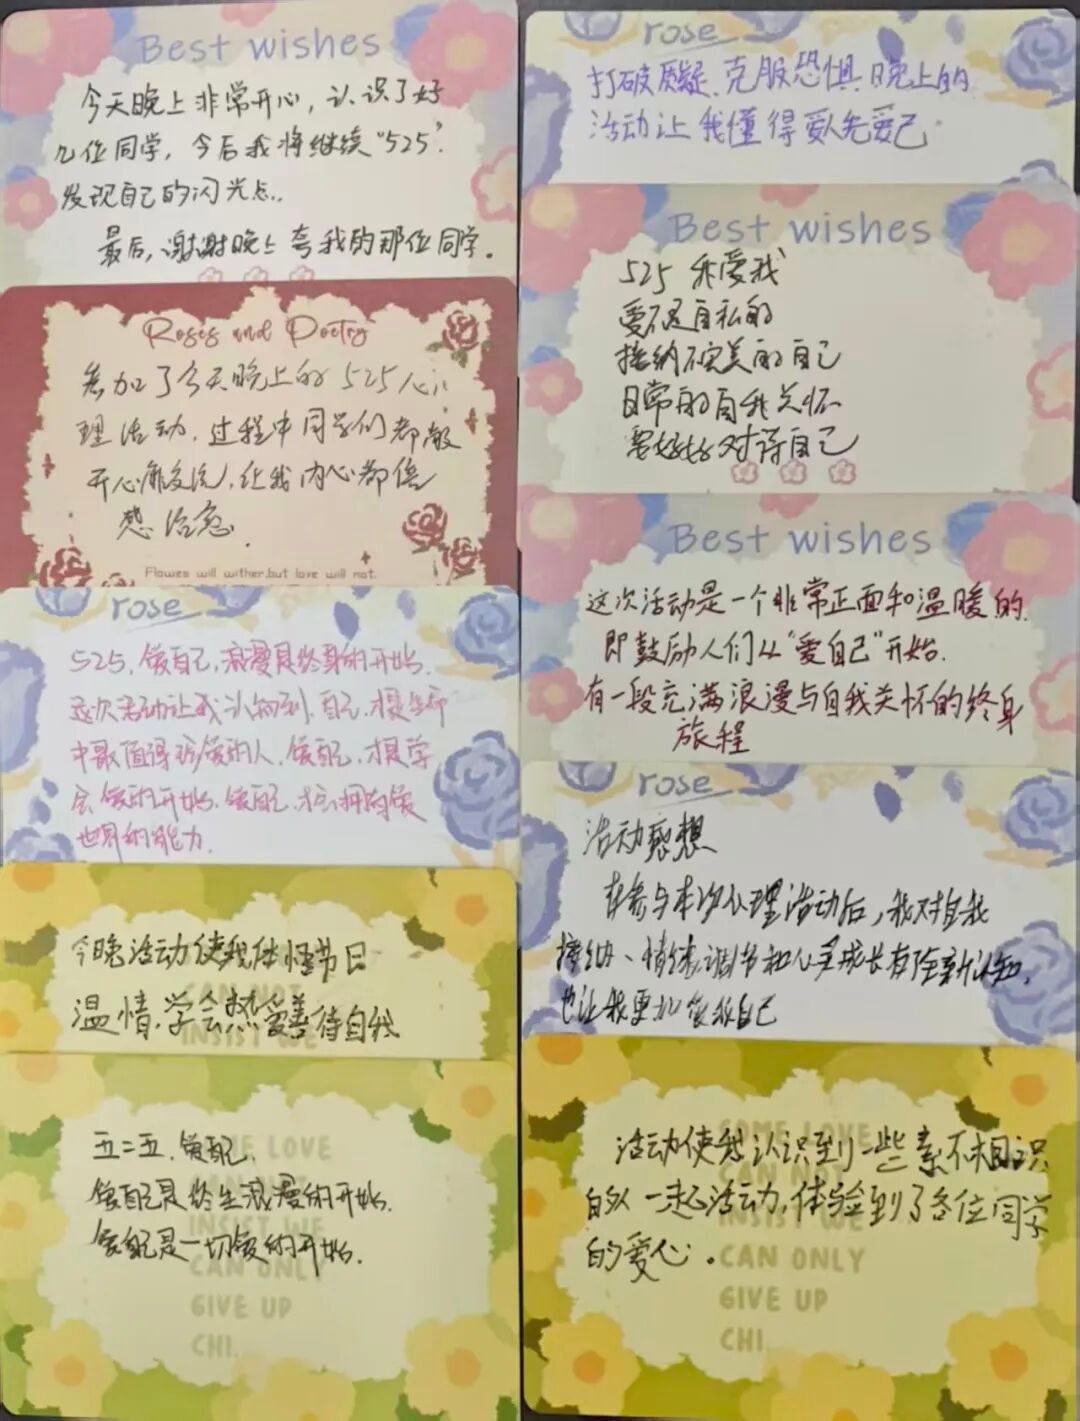 Best wishes
今天晚上非常开心，认识了好
几位同学，今后我将继续“525”，
发现自己的闪光点.
最后，谢谢晚上夸我的那位同学.
Roses and Poetry
参加了今天晚上的525心
理活动，过程中同学们都敞
开心扉交流，让我内心都倍
感治愈.
Flowes will wither,but love will not.
rose
525，爱自己，浪漫是终身的开始.
这次活动让我认识到，自己，才是生命
中最值得珍爱的人，爱自己，才是学
会爱的开始，爱自己，才会拥有爱
世界的能力.
今晚活动使我体悟节日
温情，学会热爱善待自我
CAN NOT
INSIST WE
五二五，爱自己，
爱自己是终生浪漫的开始.
爱自己是一切爱的开始.
LOVE
INSIST WE
CAN ONLY
GIVE UP
CHI.
rose
打破质疑、克服恐惧，晚上的
活动让我懂得爱人先爱己.
Best wishes
525 我爱我
爱不是自私的
接纳不完美的自己
日常的自我关怀
要好好对待自己
Best wishes
这次活动是一个非常正面和温暖的.
即鼓励人们从“爱自己”开始.
有一段充满浪漫与自我关怀的终身
旅程
rose
活动感想
在参与本次心理活动后，我对自我
接纳、情绪调节和心灵成长有了全新认知，
也让我更加爱我自己
活动使我认识到一些素不相识
的人一起活动，体验到了各位同学
的爱心.
SOME LOVE
CAN NOT
INSIST WE
CAN ONLY
GIVE UP
CHI.